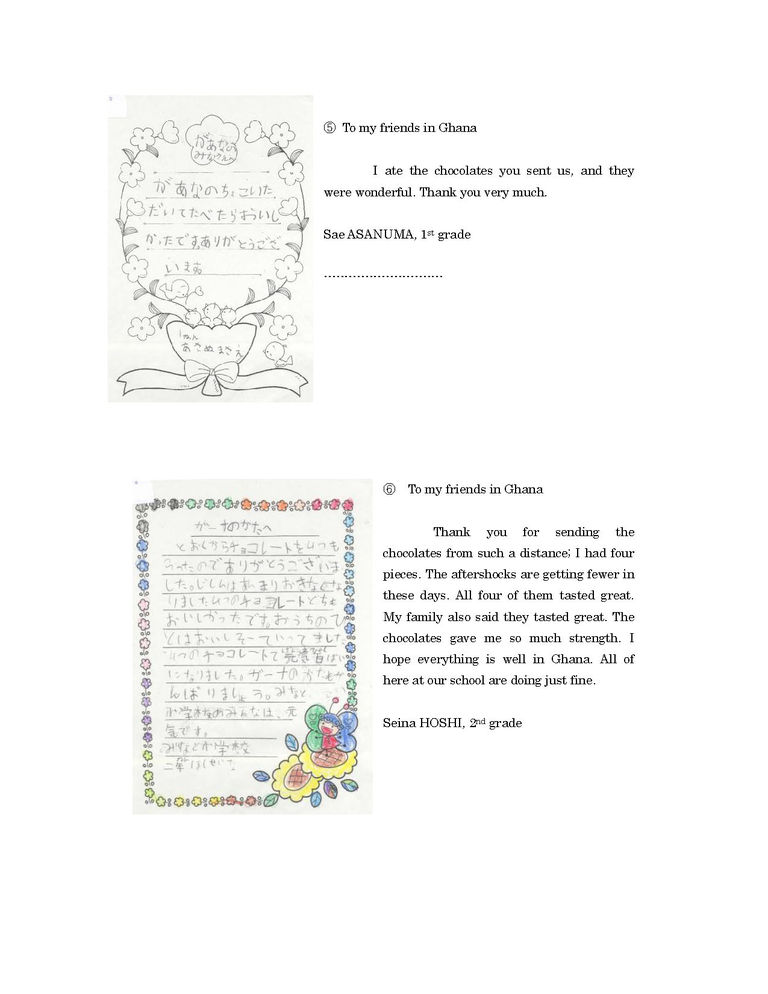 があなの
みなさんへ
があなのちょこいた
だいてたべたらおいし
かったです。ありがとうござ
います
1ねん
あさぬまさえ
⑤ To my friends in Ghana
I ate the chocolates you sent us, and they
were wonderful. Thank you very much.
Sae ASANUMA, 1st grade
-----------------------------
ガーナのかたへ
とおくからチョコレートを4つも
した。じしんはあまりおきなくな
りました。4つのチョコレートとても
おいしかったです。おうちのひ
4つのチョコレートで
になりました。ガーナの
んばりましょう。みなと
小学校のみんなは、元
気です。
みなと小学校
二年 ほしせいな
⑥ To my friends in Ghana
Thank you for sending the
chocolates from such a distance; I had four
pieces. The aftershocks are getting fewer in
these days. All four of them tasted great.
My family also said they tasted great. The
chocolates gave me so much strength. I
hope everything is well in Ghana. All of
here at our school are doing just fine.
Seina HOSHI, 2nd grade